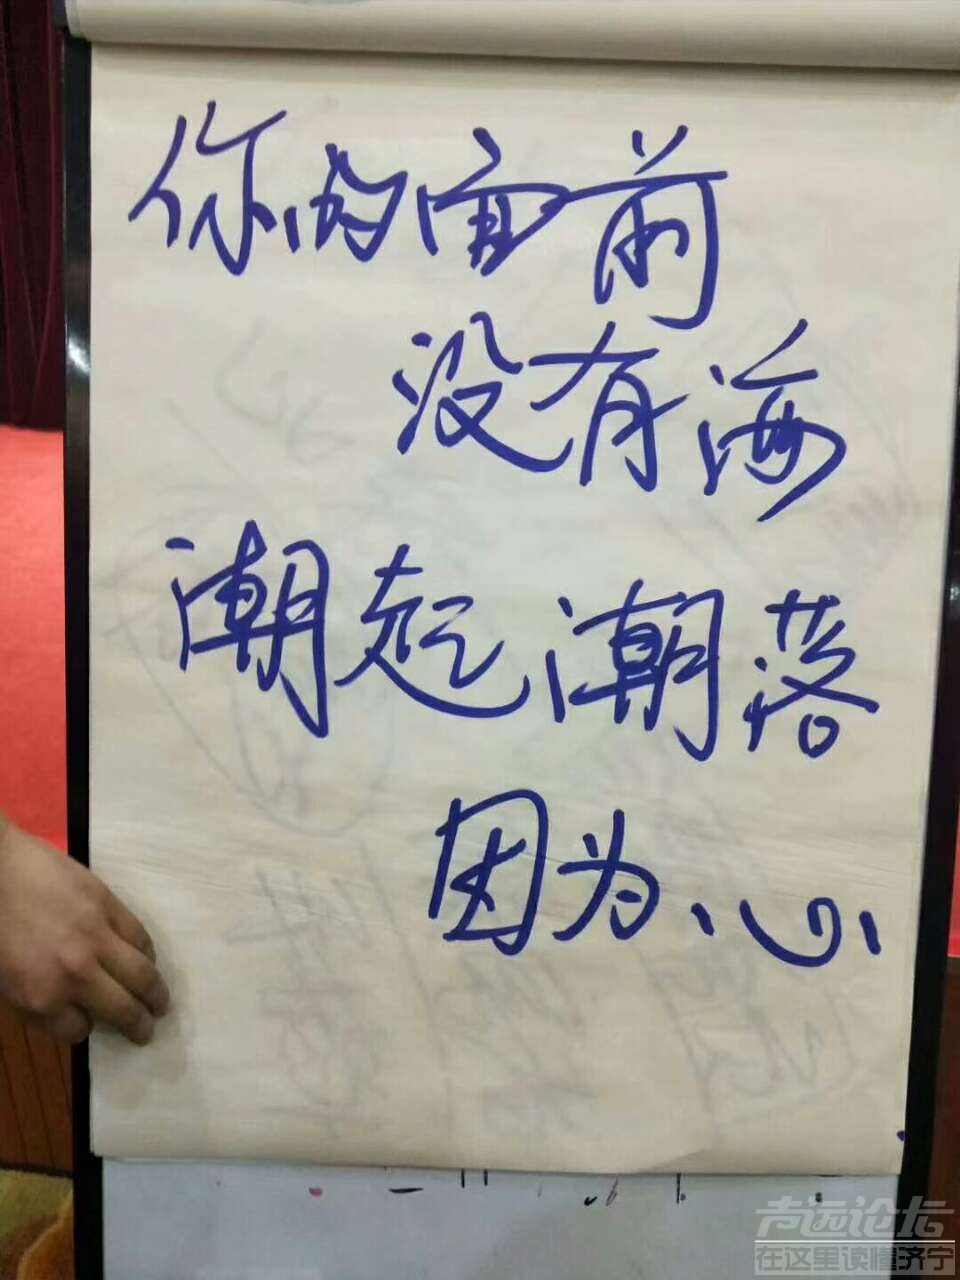 你的面前
没有海
潮起潮落
因为心
声远论坛
在这里读懂济宁